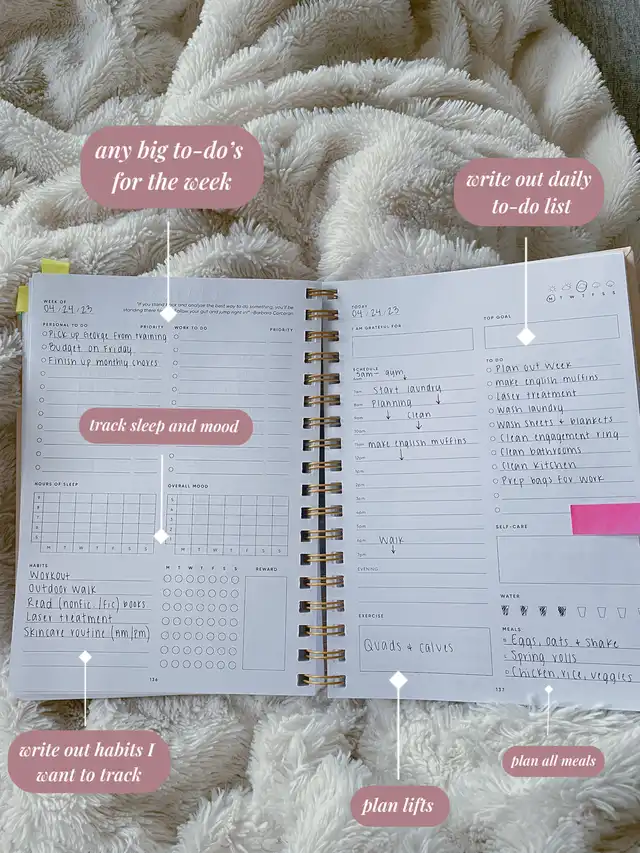 any big to-do's
for the week
write out daily
to-do list
WEEK OF
04 / 24 / 23
"If you stand and analyze the best way to do something, you'll be
standing there your gut and jump right in" -Barbara Corcoran
PERSONAL TO DO PRIORITY WORK TO DO PRIORITY
Pick up George from training
Budget on Friday
Finish up monthly chores
track sleep and mood
HOURS OF SLEEP OVERALL MOOD
M T W T F S S M T W T F S S
HABITS M T W T F S S REWARD
Workout
Outdoor walk
Read (nonfic /fic) books
Laser treatment
Skincare routine (am/pm)
136
TODAY
04 / 24 / 23
M T W T F S S
I AM GRATEFUL FOR
TOP GOAL
SCHEDULE
5am- gym
Start laundry
Planning
Clean
make english muffins
Walk
EVENING
EXERCISE
Quads + calves
TO DO
Plan out week
make english muffins
Laser treatment
Wash laundry
Wash sheets + blankets
Clean engagement ring
Clean bathrooms
Clean kitchen
Prep bags for work
SELF-CARE
WATER
MEALS
Eggs, oats + shake
Spring rolls
Chicken, rice, veggies
137
write out habits I
want to track
plan lifts
plan all meals